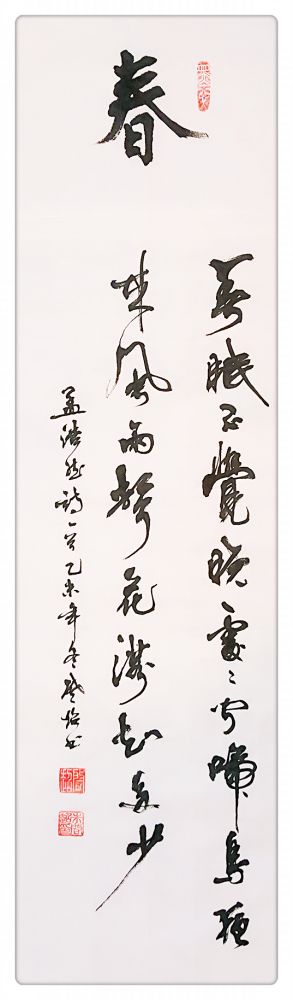 春
春眠不覺曉處々聞啼鳥夜
來風雨聲花落知多少
孟浩然詩一首乙未年冬